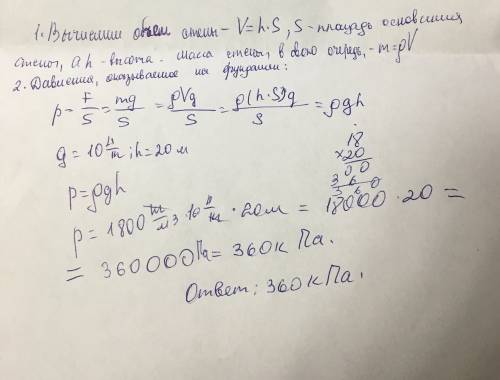 1. Вычислим объем стены - V=h·S, S - площадь основания
стены, а h - высота. Масса стены, в свою очередь, - m=ρV
2. Давление, оказываемое на фундамент:
p = F/S = mg/S = ρVg/S = ρ(h·S)g/S = ρgh
g = 10 Н/кг; h = 20 м
18
×20
00
36
360
p = ρgh
p = 1800 кг/м3 · 10 Н/кг · 20м = 18000 · 20 =
= 360000 Па = 360 к Па.
Ответ: 360 кПа.